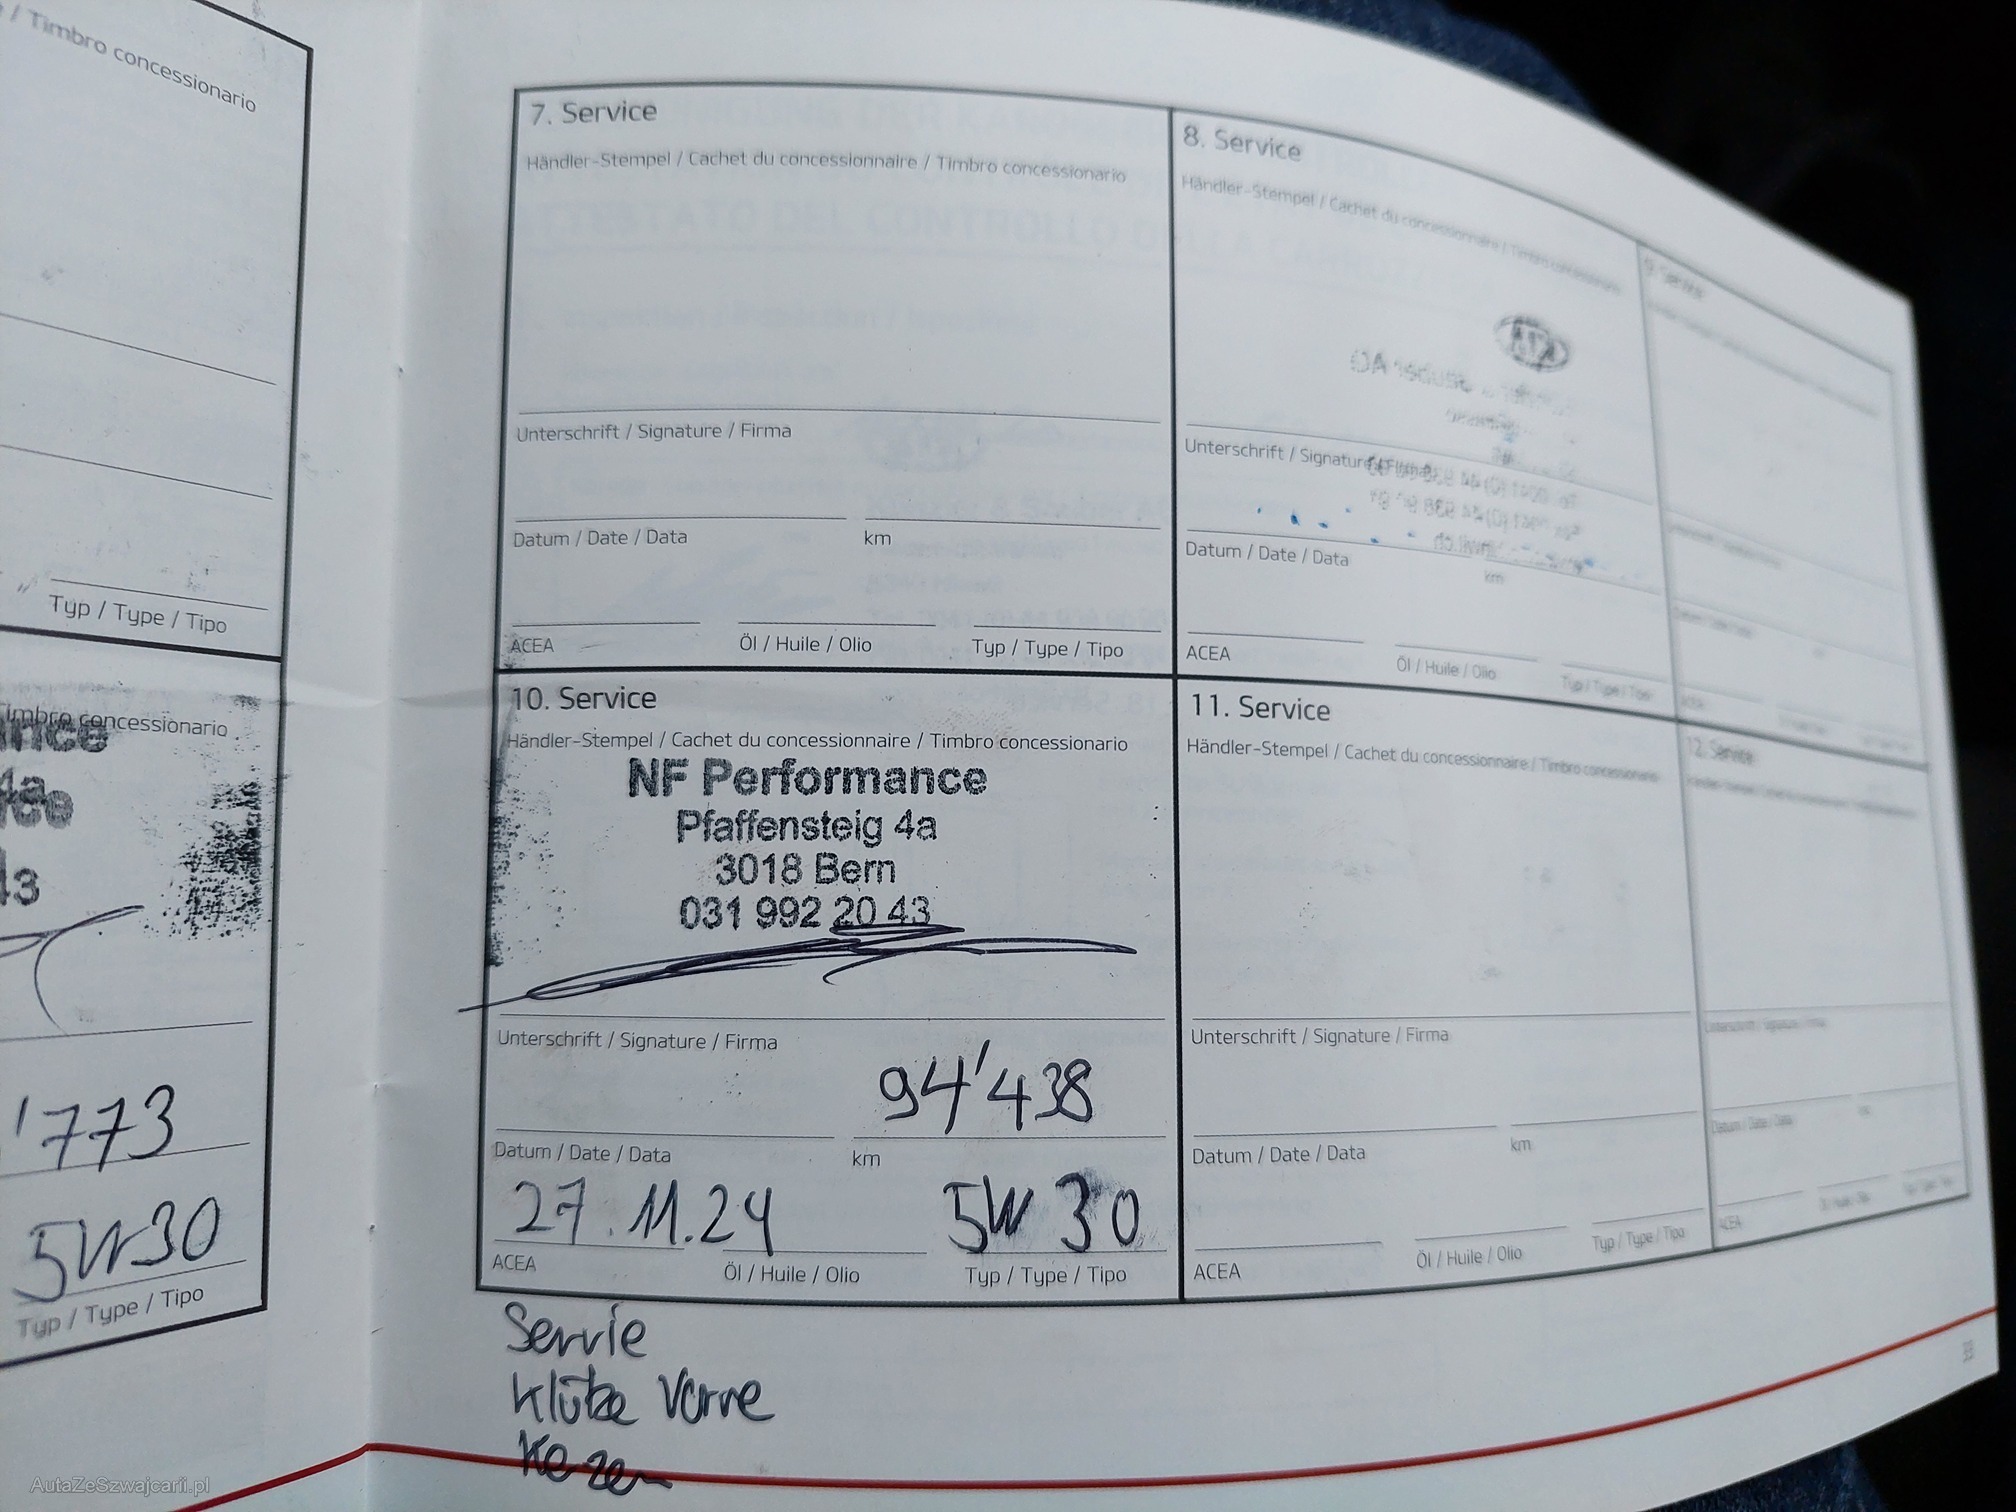 / Timbro concessionario
Typ / Type / Tipo
Timbro concessionario
nce
4a
ce
43
'773
5W30
Typ / Type / Tipo
7. Service
Händler-Stempel / Cachet du concessionnaire / Timbro concessionario
Unterschrift / Signature / Firma
Datum / Date / Data
km
ACEA
Öl / Huile / Olio
Typ / Type / Tipo
8. Service
Händler-Stempel / Cachet du concessionnaire / Timbro concessionario
Unterschrift / Signature / Firma
Datum / Date / Data
km
ACEA
Öl / Huile / Olio
Typ / Type / Tipo
9. Service
10. Service
Händler-Stempel / Cachet du concessionnaire / Timbro concessionario
NF Performance
Pfaffensteig 4a
3018 Bern
031 992 20 43
Unterschrift / Signature / Firma
94'438
Datum / Date / Data
km
27.11.24
5W 30
ACEA
Öl / Huile / Olio
Typ / Type / Tipo
11. Service
Händler-Stempel / Cachet du concessionnaire / Timbro concessionario
Unterschrift / Signature / Firma
Datum / Date / Data
km
ACEA
Öl / Huile / Olio
Typ / Type / Tipo
12. Service
Unterschrift / Signature / Firma
Datum / Date / Data
km
ACEA
Servie
Vorne
AutaZeSzwajcarii.pl